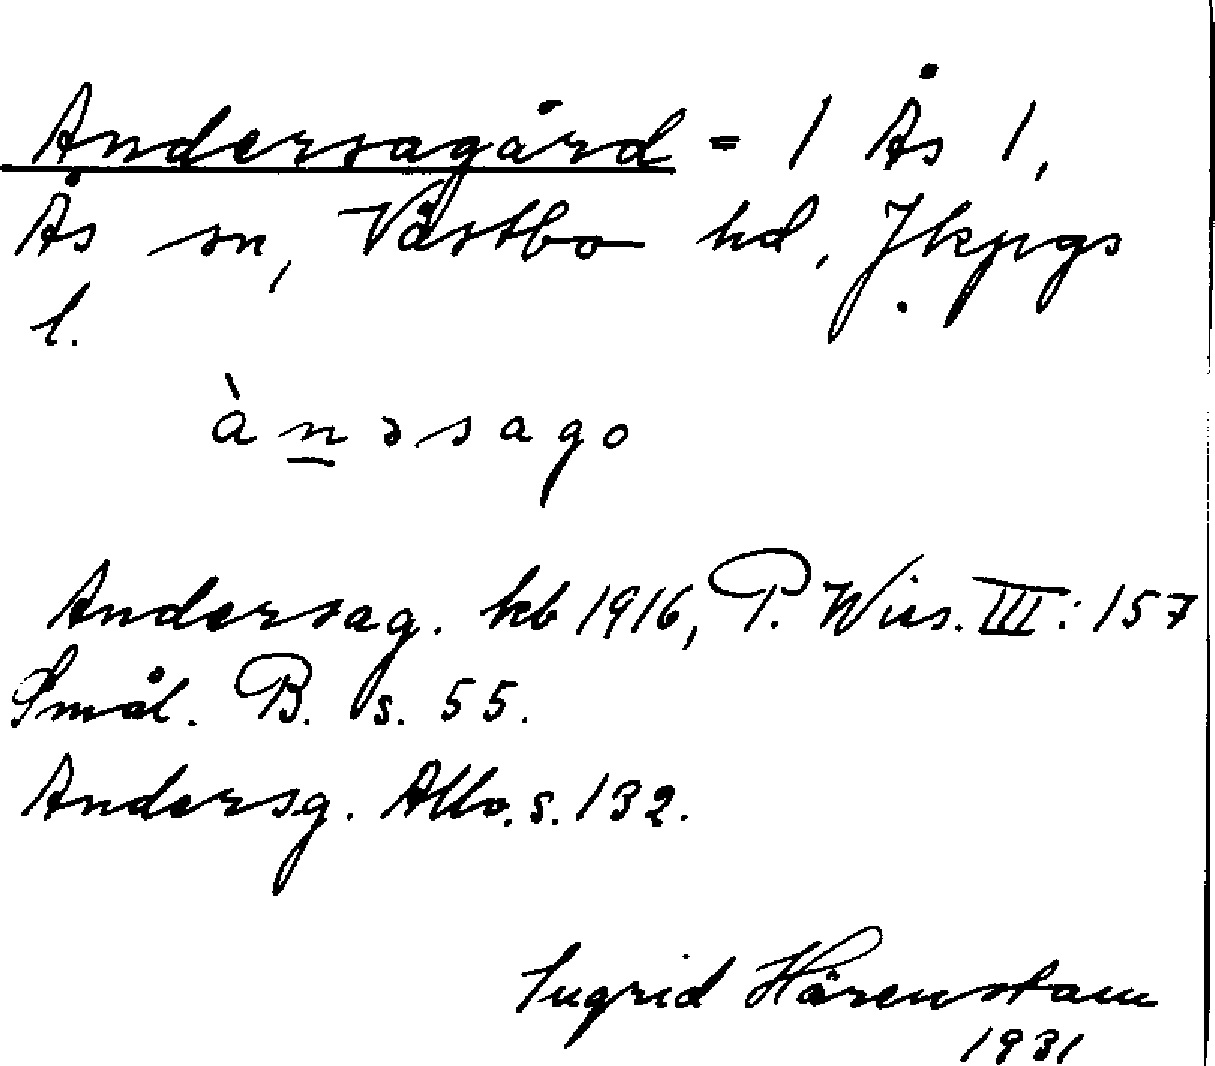 Andersagård = 1 Ås 1,
Ås sn, Västbo hd, Jkpgs
l.
à n ə s a g o
Andersag. kb 1916, P. Wies. III: 157
Smål. B. s. 55.
Andersg. Allo. s. 132.
Ingrid Härenstam
1931